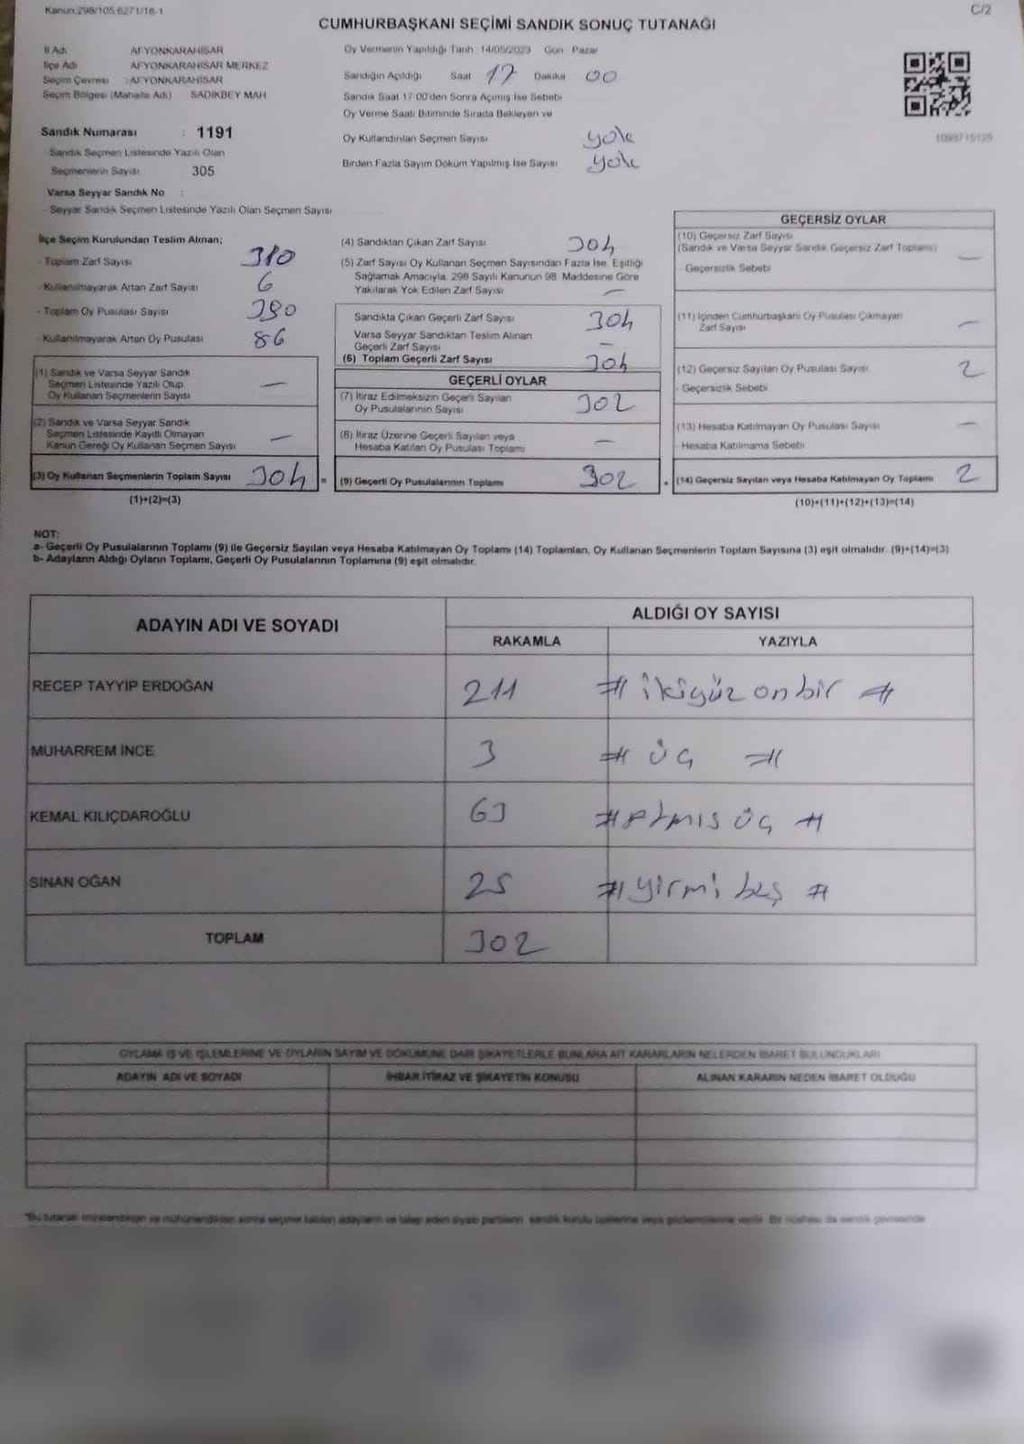 Kanun:298/105 6271/16-1
C/2
CUMHURBAŞKANI SEÇİMİ SANDIK SONUÇ TUTANAĞI
İl Adı AFYONKARAHİSAR
İlçe Adı AFYONKARAHİSAR MERKEZ
Seçim Çevresi : AFYONKARAHİSAR
Seçim Bölgesi (Mahalle Adı) SADIKBEY MAH
Sandık Numarası : 1191
Sandık Seçmen Listesinde Yazılı Olan
Seçmenlerin Sayısı 305
Varsa Seyyar Sandık No :
Seyyar Sandık Seçmen Listesinde Yazılı Olan Seçmen Sayısı
Oy Vermenin Yapıldığı Tarih 14/05/2023 Gün Pazar
Sandığın Açıldığı Saat 17 Dakika 00
Sandık Saat 17:00'den Sonra Açılmış İse Sebebi
Oy Verme Saati Bitiminde Sırada Bekleyen ve
Oy Kullandırılan Seçmen Sayısı yok
Birden Fazla Sayım Döküm Yapılmış İse Sayısı yok
İlçe Seçim Kurulundan Teslim Alınan;
- Toplam Zarf Sayısı 310
- Kullanılmayarak Artan Zarf Sayısı 6
- Toplam Oy Pusulası Sayısı 390
- Kullanılmayarak Artan Oy Pusulası 86
(1) Sandık ve Varsa Seyyar Sandık
Seçmen Listesinde Yazılı Olup
Oy Kullanan Seçmenlerin Sayısı —
(2) Sandık ve Varsa Seyyar Sandık
Seçmen Listesinde Kayıtlı Olmayan
Kanun Gereği Oy Kullanan Seçmen Sayısı —
(3) Oy Kullanan Seçmenlerin Toplam Sayısı 304 =
(1)+(2)=(3)
(4) Sandıktan Çıkan Zarf Sayısı 304
(5) Zarf Sayısı Oy Kullanan Seçmen Sayısından Fazla İse, Eşitliği
Sağlamak Amacıyla, 298 Sayılı Kanunun 98. Maddesine Göre
Yakılarak Yok Edilen Zarf Sayısı —
Sandıkta Çıkan Geçerli Zarf Sayısı 304
Varsa Seyyar Sandıktan Teslim Alınan
Geçerli Zarf Sayısı —
(6) Toplam Geçerli Zarf Sayısı 304
GEÇERLİ OYLAR
(7) İtiraz Edilmeksizin Geçerli Sayılan
Oy Pusulalarının Sayısı 302
(8) İtiraz Üzerine Geçerli Sayılan veya
Hesaba Katılan Oy Pusulası Toplamı —
(9) Geçerli Oy Pusulalarının Toplamı 302 +
GEÇERSİZ OYLAR
(10) Geçersiz Zarf Sayısı
(Sandık ve Varsa Seyyar Sandık Geçersiz Zarf Toplamı) —
- Geçersizlik Sebebi
(11) İçinden Cumhurbaşkanı Oy Pusulası Çıkmayan
Zarf Sayısı —
(12) Geçersiz Sayılan Oy Pusulası Sayısı 2
- Geçersizlik Sebebi
(13) Hesaba Katılmayan Oy Pusulası Sayısı —
- Hesaba Katılmama Sebebi
(14) Geçersiz Sayılan veya Hesaba Katılmayan Oy Toplamı 2
(10)+(11)+(12)+(13)=(14)
NOT:
a- Geçerli Oy Pusulalarının Toplamı (9) ile Geçersiz Sayılan veya Hesaba Katılmayan Oy Toplamı (14) Toplamları, Oy Kullanan Seçmenlerin Toplam Sayısına (3) eşit olmalıdır. (9)+(14)=(3)
b- Adayların Aldığı Oyların Toplamı, Geçerli Oy Pusulalarının Toplamına (9) eşit olmalıdır.
ADAYIN ADI VE SOYADI ALDIĞI OY SAYISI
RAKAMLA YAZIYLA
RECEP TAYYİP ERDOĞAN 211 # ikiyüz onbir #
MUHARREM İNCE 3 # üç #
KEMAL KILIÇDAROĞLU 63 # altmış üç #
SİNAN OĞAN 25 # yirmi beş #
TOPLAM 302
OYLAMA İŞ VE İŞLEMLERİNE VE OYLARIN SAYIM VE DÖKÜMÜNE DAİR ŞİKAYETLERLE BUNLARA AİT KARARLARIN NELERDEN İBARET BULUNDUKLARI
ADAYIN ADI VE SOYADI İHBAR/İTİRAZ VE ŞİKAYETİN KONUSU ALINAN KARARIN NEDEN İBARET OLDUĞU